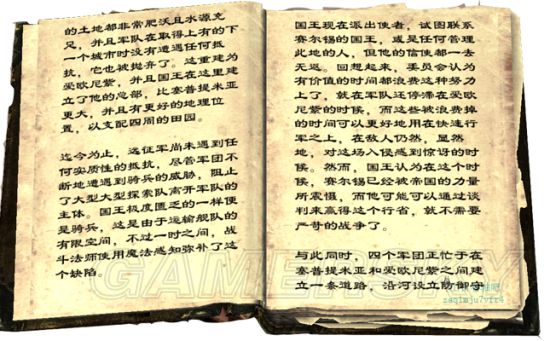 的土地都非常肥沃且水源充
足，并且军队在取得上有的下
一个城市时没有遭遇任何抵
抗，它也被抛弃了。这重建为
爱欧尼紫，并且国王在这里建
立了他的总部，比塞普提米亚
更大，并且有更好的地理位
置，以支配四周的田园。
迄今为止，远征军尚未遇到任
何实质性的抵抗，尽管军团不
断地遭遇到骑兵的威胁，阻止
了大型大型探索队离开军队的
主体。国王极度匮乏的一样便
是骑兵，这是由于运输舰队的
有限空间，不过一时之间，战
斗法师使用魔法感知弥补了这
个缺陷。
国王现在派出使者，试图联系
赛尔锡的国王，或是任何管理
此地的人，但他的信使都一去
无返。回想起来，委员会认为
有价值的时间都浪费这种努力
上了，就在军队还停滞在爱欧
尼紫的时候，而这些被浪费掉
的时间可以更好地用在快速行
军之上，在敌人仍然，显然
地，对这场入侵感到惊讶的时
候。然而，国王认为在这个时
候，赛尔锡已经被帝国的力量
所震慑，而他可能可以通过谈
判来赢得这个行省，就不需要
严苛的战争了。
与此同时，四个军团正忙于在
塞普提米亚和爱欧尼紫之间建
立一条道路，沿河设立防御守
GAMERSKY
zaq1mju7vfr4